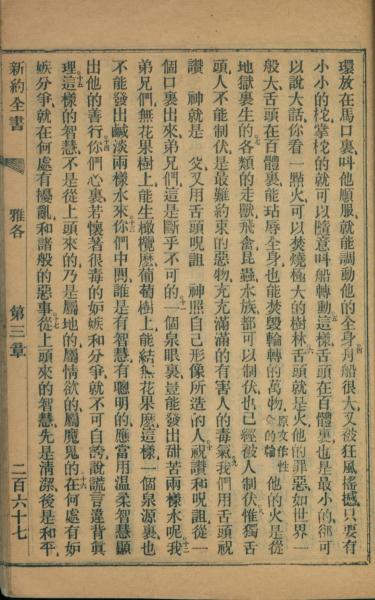 環放在馬口裏叫他順服、就能調動他的全身、四舟船很大、又被狂風搖撼、只要有
小小的柁、掌柁的就可以隨意叫船轉動、五這樣舌頭在百體裏也是最小的、卻可
以說大話、你看一點火可以焚燒極大的樹林、六舌頭就是火、他的罪惡如世界一
般大、舌頭在百體裏能玷辱全身、也能焚毀輪轉的萬物、原文作性命的輪他的火是從
地獄裏生的、七各類的走獸飛禽昆蟲水族、都可以制伏、也已經被人制伏、八惟獨舌
頭、人不能制伏、是最難約束的惡物、充充滿滿的有害人的毒氣、九我們用舌頭祝
讚 神、就是 父、又用舌頭呪詛 神照自己形像所造的人、十祝讚和呪詛、從一
個口裏出來、弟兄們、這是斷乎不可的、十一一個泉眼裏豈能發出甜苦兩樣水呢、十二我
弟兄們、無花果樹上能生橄欖麼、葡萄樹上能結無花果麼、這樣一個泉源裏、也
不能發出鹹淡兩樣水來、十三你們中間誰是有智慧有聰明的、應當用温柔智慧顯
出他的善行、十四你們心裏若懷著很毒的妒嫉和分爭、就不可自誇、說謊言違背眞
理、十五這樣的智慧、不是從上頭來的、乃是屬地的、屬情欲的、屬魔鬼的、十六在何處有妒
嫉分爭、就在何處有擾亂和諸般的惡事、十七從上頭來的智慧、先是淸潔、後是和平、
新約全書 雅各 第三章 二百六十七